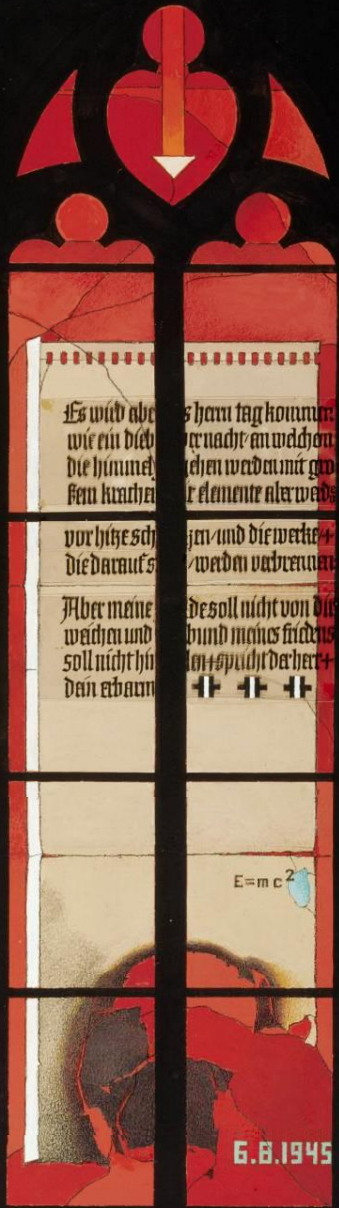 Es wird abe s herrn tag kommen
wie ein dieb er nacht/an welchem
die himmel gehen werden mit gro
ßem krachen r elemente aber werd
vor hitze sch zen/und die werke+
die darauf s /werden verbrennen
Aber meine de soll nicht von di
weichen und bund meines friedens
soll nicht hin len+spricht der herr+
dein erbarm
E=mc²
6.8.1945